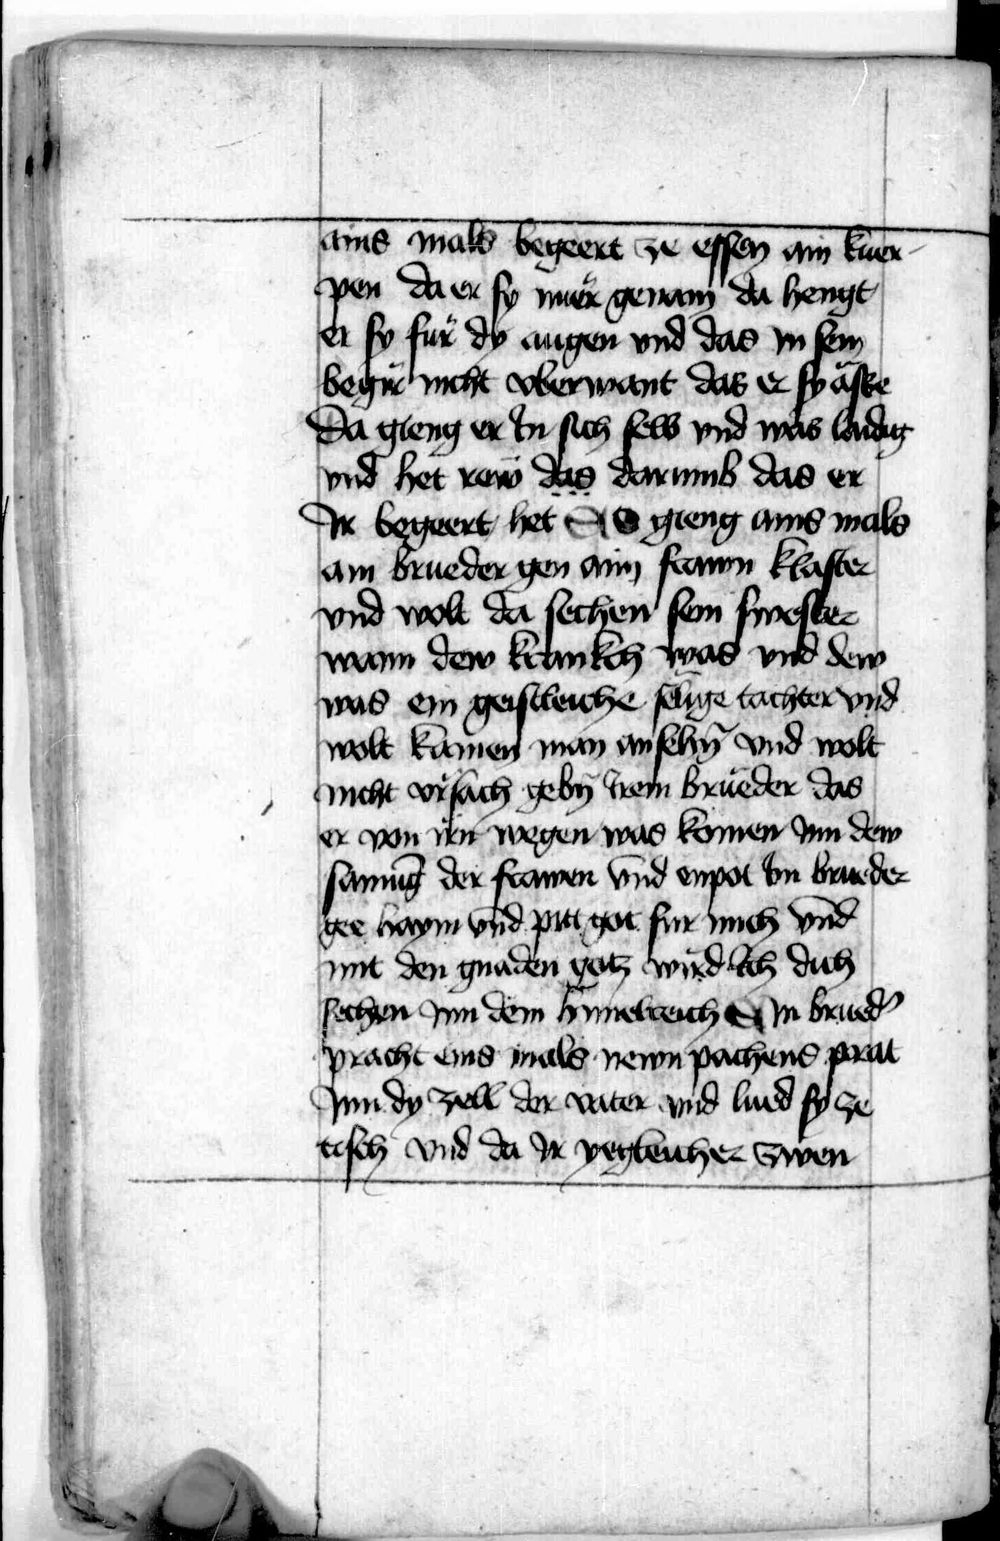 ains mals begeert ze essen ain kuer-
pen da er sy nuer genam da hengt
er sy für dy augen vnd das in sein
begir nicht vberwant das er sy ässe
Da gieng er In sich selb vnd was laidig
vnd het rew das darumb das er
Ir begeert het Es gieng ains mals
ain brueder gen aim frawn klaster
vnd wolt da sechen sein swester
wann dew krankch was vnd dew
was ein geistleiche sälige tachter vnd
wolt kainen man ansehn̄ vnd wolt
nicht vrsach gebn̄ Irem brueder das
er von irn wegen was komen Inn dew
samn̄g der frawen vnd enpot Im brueder
gee haym vnd pitt got fur mich vnd
mit den gnaden gotz wird Ich dich
sechen Inn dem himelreich Ein brued'
pracht eins mals newn pachens prat
Inn dy zell der vater vnd lued sy ze
tisch vnd da Ir yegleicher zwen